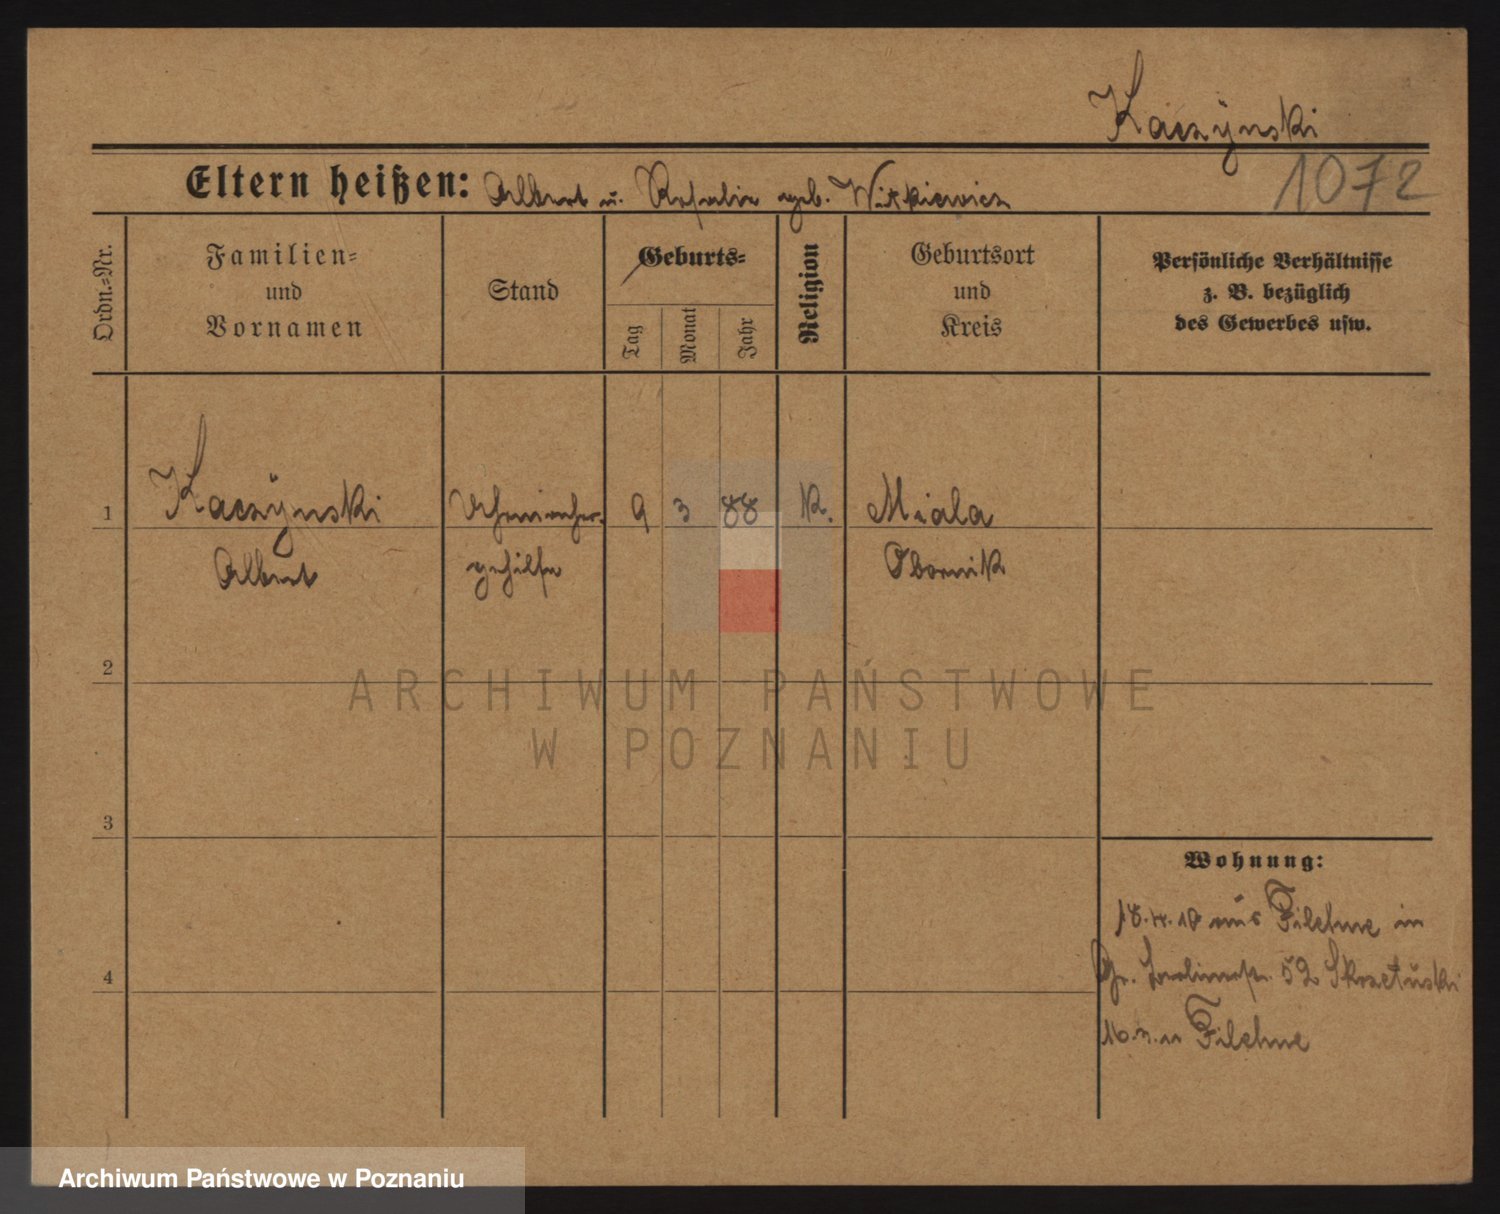 Kaczÿnski
1072
Eltern heißen: Albert u. Rosalie geb. Witkiewicz
Ordn.=Nr.
Familien=
und
Vornamen
Stand
Geburts=
Tag
Monat
Jahr
Religion
Geburtsort
und
Kreis
Persönliche Verhältnisse
z. B. bezüglich
des Gewerbes usw.
1
Kaczÿnski
Albert
Uhrmacher-
gehilfe
9
3
88
K.
Miala
Obornik
2
ARCHIWUM PAŃSTWOWE
W POZNANIU
3
Wohnung:
18.4.10 aus Filehne in
Gr. Berlinerstr. 52 Skrzetuski
4
Filehne
Archiwum Państwowe w Poznaniu